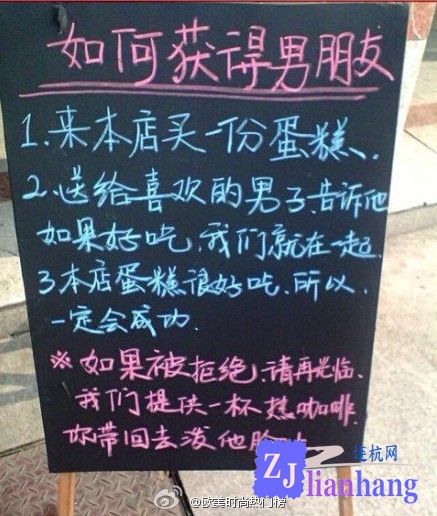 如何获得男朋友
1.来本店买一份蛋糕.
2.送给喜欢的男子,告诉他
如果好吃,我们就在一起.
3.本店蛋糕很好吃.所以.
一定会成功.
※如果被拒绝,请再光临.
我们提供一杯热咖啡.
你带回去泼他
ZJ 连杭网
lianhang
@欧美时尚热门榜